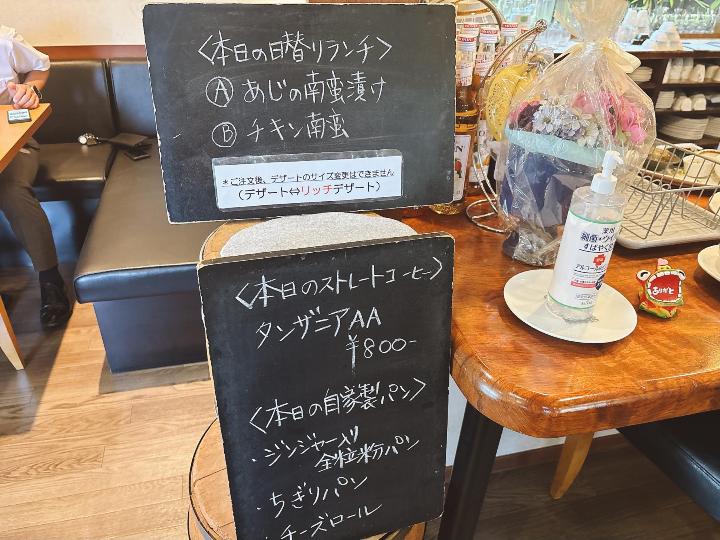 〈本日の日替りランチ〉
Ⓐ あじの南蛮漬け
Ⓑ チキン南蛮
*ご注文後、デザートのサイズ変更はできません
(デザート⇔リッチデザート)
〈本日のストレートコーヒー〉
タンザニアAA
¥800-
〈本日の自家製パン〉
・ジンジャー入り
全粒粉パン
・ちぎりパン
・チーズロール
細菌・ウイ
すばやく
アルコール
ありがと